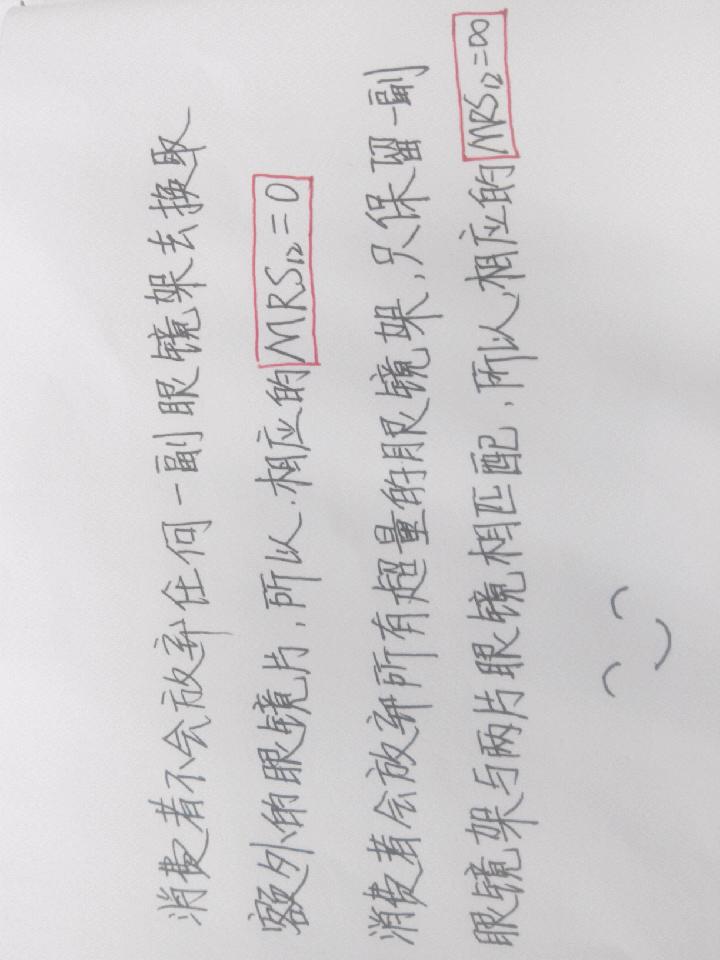 消费者不会放弃任何一副眼镜架去换取
额外的眼镜片,所以,相应的MRS₁₂=0
消费者会放弃所有超量的眼镜架,只保留一副
眼镜架与两片眼镜相匹配,所以,相应的MRS₁₂=∞